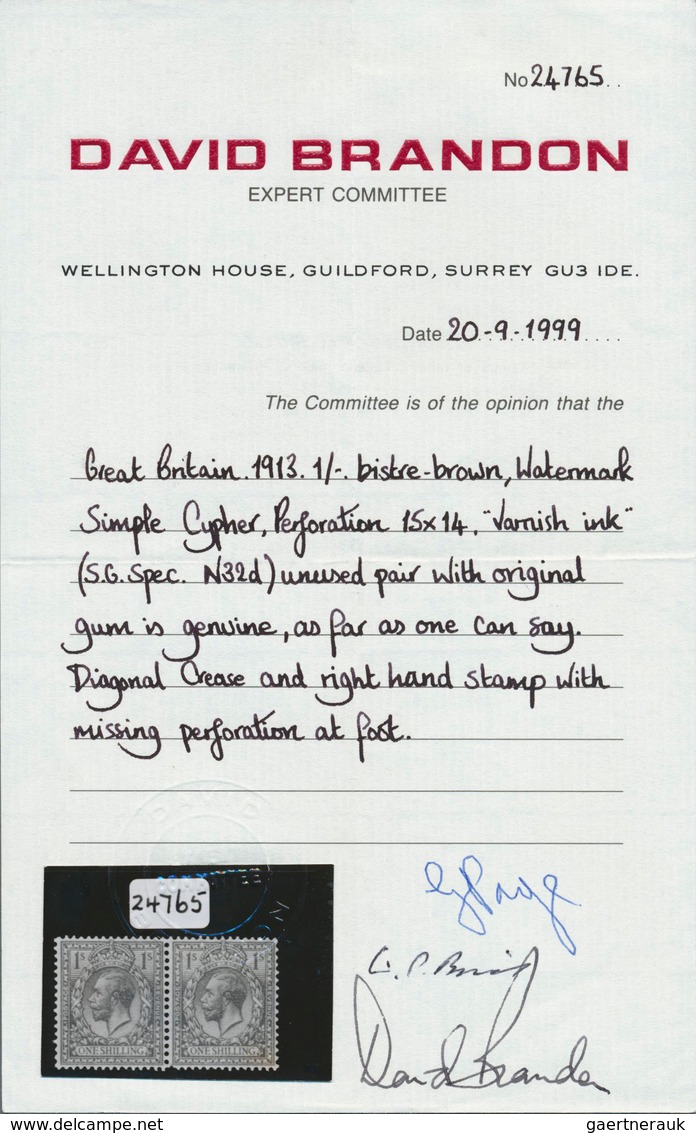 No 24765..
DAVID BRANDON
EXPERT COMMITTEE
WELLINGTON HOUSE, GUILDFORD, SURREY GU3 IDE.
Date 20-9-1999....
The Committee is of the opinion that the
Great Britain. 1913. 1/-. bistre-brown, Watermark
Simple Cypher, Perforation 15x14, "Varnish ink"
(S.G. Spec. N32d) unused pair with original
gum is genuine, as far as one can say.
Diagonal Crease and right hand stamp with
missing perforation at foot.
DAVID
24765
1S 1S 1S 1S
ONE SHILLING ONE SHILLING
David Brandon
gaertnerauk